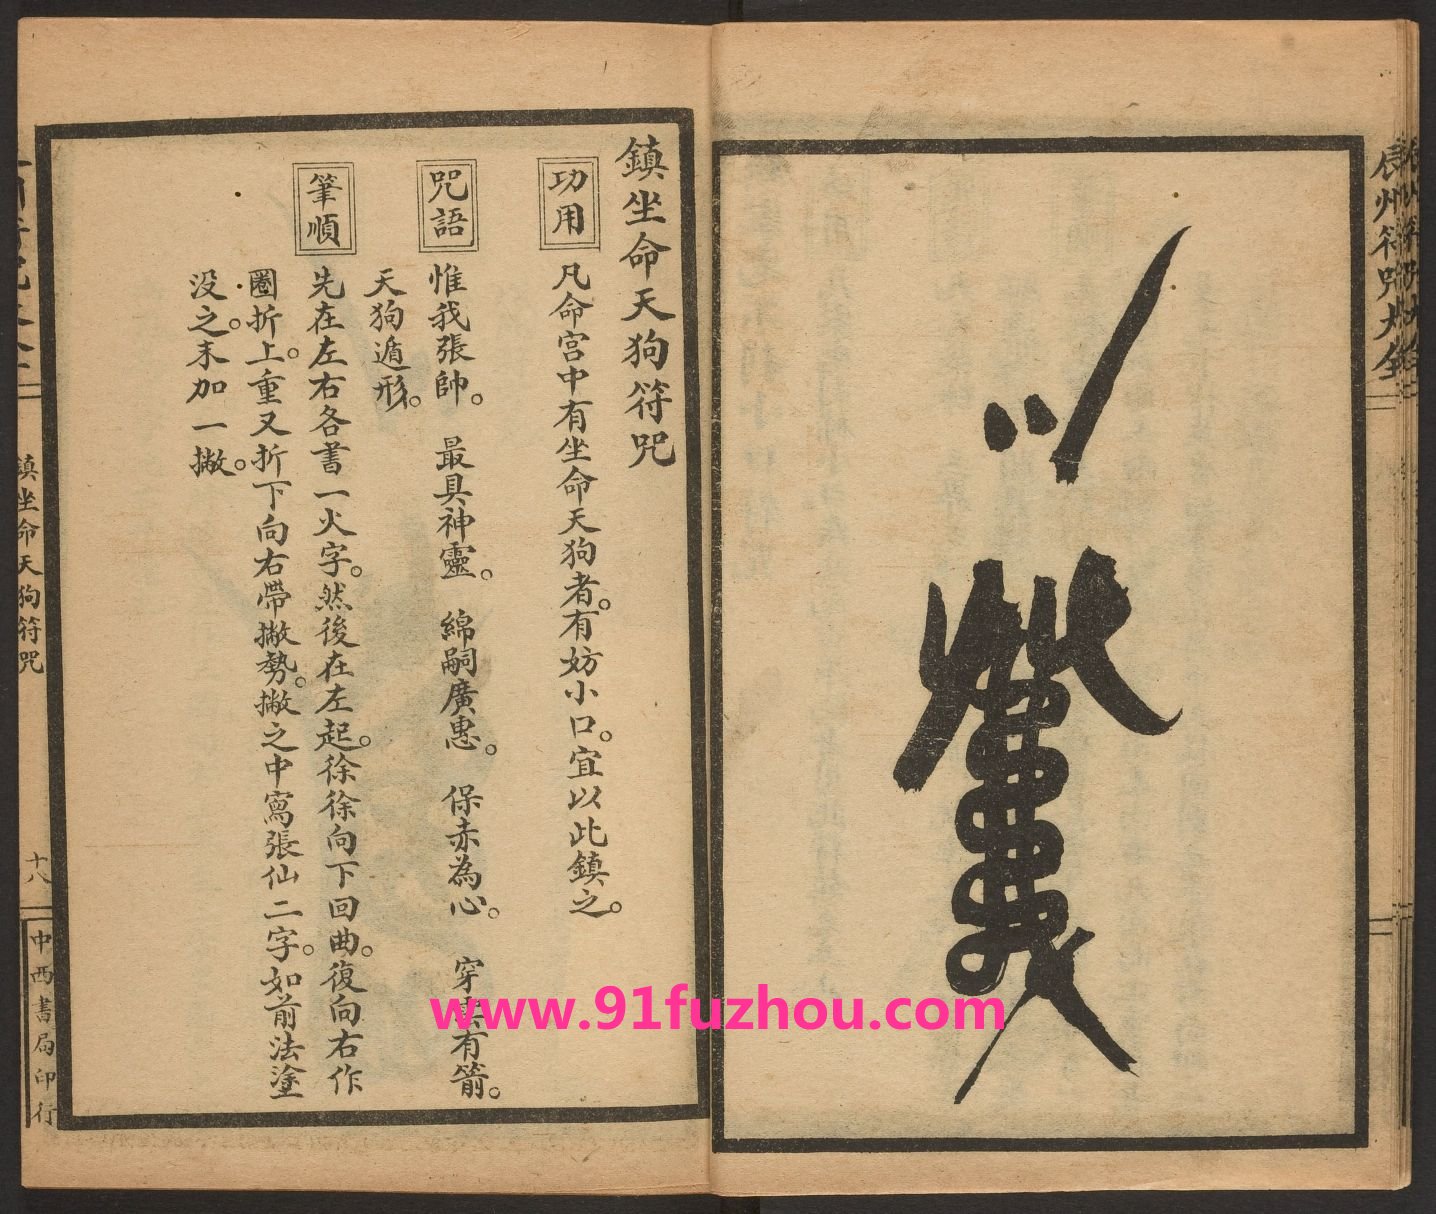 辰州符咒大全
鎮坐命天狗符咒
功用
凡命宮中有坐命天狗者。有妨小口。宜以此鎮之。
咒語
惟我張帥。 最具神靈。 綿嗣廣惠。 保赤為心。 穿雲有箭。
天狗遁形。
筆順
先在左右各書一火字。然後在左起。徐徐向下回曲。復向右作
圈折上。重又折下向右帶撇勢。撇之中寫張仙二字。如前法塗
没之。末加一撇。
鎮坐命天狗符咒
十八
中西書局印行
www.91fuzhou.com